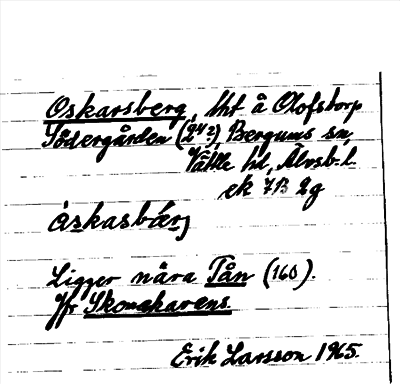 Oskarsberg, lht å Olofstorp
Södergården (24²), Bergums sn,
Vättle hd, Älvsb. l.
ek 7B 2g
åskasbærj
Ligger nära Tån (160).
Jfr Skomakarens.
Erik Larsson 1965.